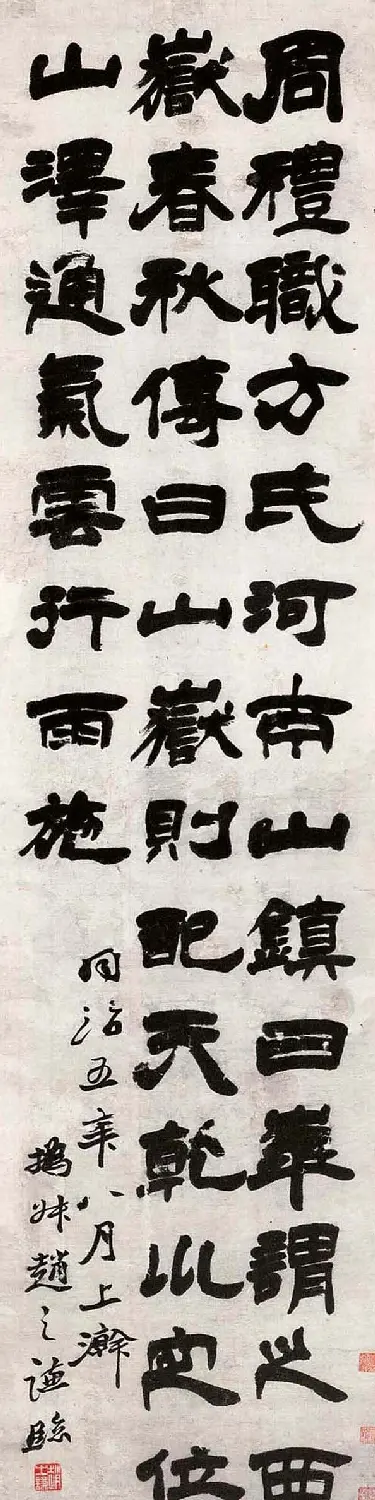 周禮職方氏河南山鎮曰華謂之西
嶽春秋傳曰山嶽則配天乾以定位
山澤通氣雲行雨施
同治五年八月上澣
撝叔趙之謙臨